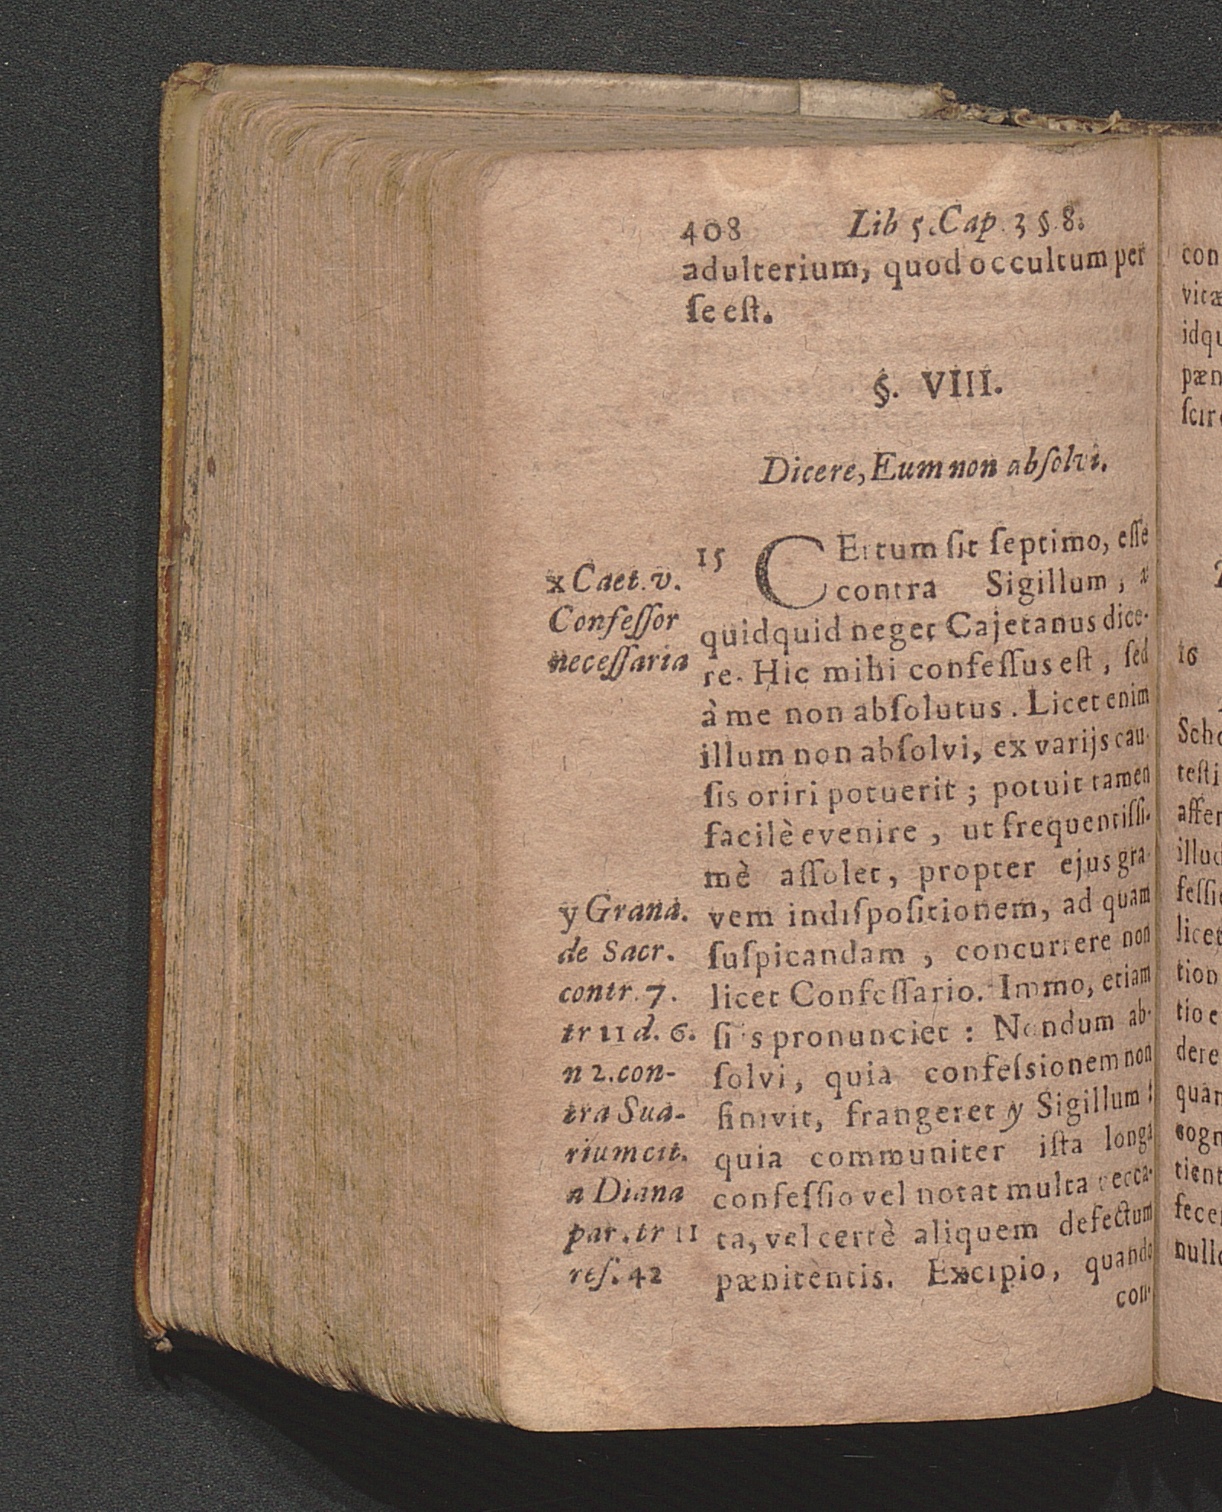 408 Lib 5.Cap 3 §.8.
adulterium, quod occultum per
ſe eſt.
§. VIII.
Dicere, Eum non abſolvi.
15 CErtum ſit ſeptimo, eſſe
contra Sigillum, x
quidquid neget Cajetanus dice-
re. Hic mihi confeſſus eſt, ſed
à me non abſolutus. Licet enim
illum non abſolvi, ex varijs cau-
ſis oriri potuerit; potuit tamen
facilè evenire, ut frequentiſſi-
mè aſſolet, propter ejus gra-
vem indiſpoſitionem, ad quam
ſuſpicandam, concurrere non
licet Confeſſario. Immo, etiam
ſi is pronunciet: Nondum ab-
ſolvi, quia confeſsionem non
finivit, frangeret y Sigillum:
quia communiter iſta longa
confeſſio vel notat multa pecca-
ta, vel certè aliquem defectum
pænitèntis. Excipio, quando
con-
x Caet. v.
Confeſſor
neceſſaria
y Granà.
de Sacr.
contr. 7.
tr 11 d. 6.
n 2. con-
tra Sua-
rium cit.
a Diana
par. tr 11
reſ. 42
con
vitæ
idqu
pæn
ſcire
16
Scho
teſti
affer
illud
feſſi
licet
tion
tio e
dere
quan
cogn
tient
fece
nullo